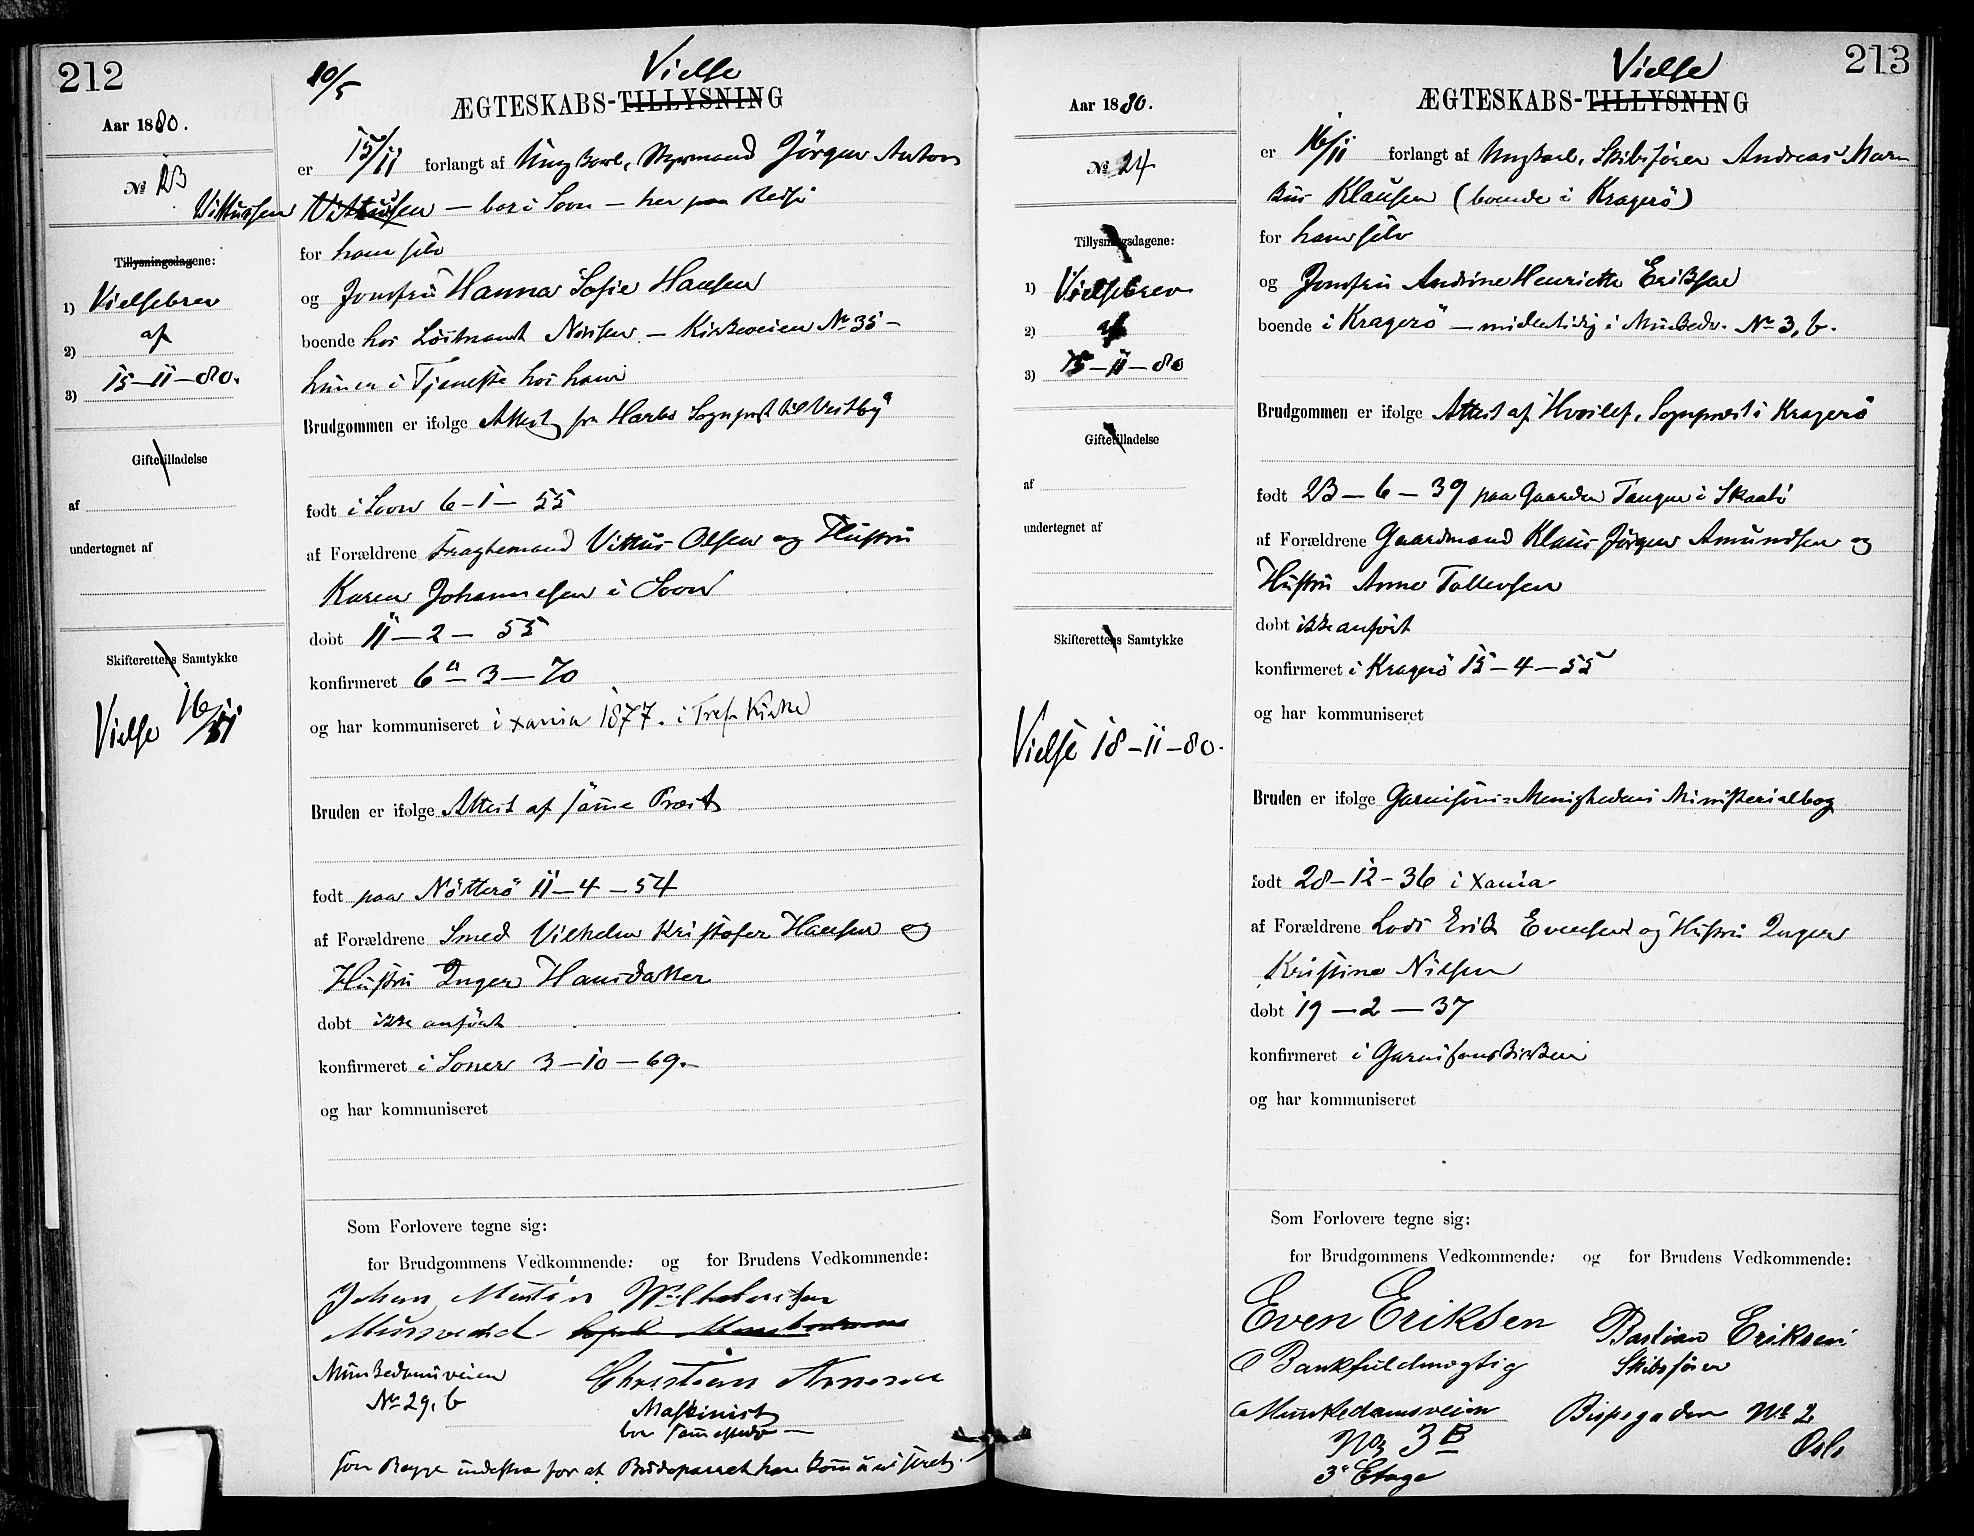 212
Aar 1880.
№ 23
Vittussen
Tillysningsdagene:
1) Vielsebrev
2) af
3) 15-11-80.
Giftetilladelse
af
undertegnet af
Skifterettens Samtykke
Vielse 16/11
20/5
Vielse
ÆGTESKABS-TILLYSNING
er 15/11 forlangt af Ungkarl, Styrmand Jörgen Anton
Vittussen — bor i Soon — her paa Reise
for ham selv
og Jomfru Hanna Sofie Hansen
boende hos Nilsen — Kirkeveien No 35 —
hun er i Tjeneste hos ham
Brudgommen er ifølge Attest fra Sognprest til Vestby
født i Soon 6-1-55
af Forældrene Fragtemand Vittus Olsen og Hustru
Karen Johannesen i Soon
døbt 11-2-55
konfirmeret 6-3-70
og har kommuniseret i Xania 1877. i Tref. Kirke
Bruden er ifølge Attest af samme Præst
født paa Nötterö 11-4-54
af Forældrene Smed Vilhelm Kristofer Hansen og
Hustru Inger Hansdatter
døbt ikke anført
konfirmeret i Soner 3-10-69.
og har kommuniseret
Som Forlovere tegne sig:
for Brudgommens Vedkommende: og for Brudens Vedkommende:
Johan Martin Wilhelmsen
Munkedamsveien
No 29, b
Christian Arnesen
Maskinist
bor sammesteds —
som Begge indestaa for at Brudeparret har kommuniseret.
213
Aar 1880.
№ 24
Tillysningsdagene:
1) Vielsebrev
2) af
3) 15-11-80
Giftetilladelse
af
undertegnet af
Skifterettens Samtykke
Vielse 18-11-80.
Vielse
ÆGTESKABS-TILLYSNING
er 16/11 forlangt af Ungkarl, Skibsfører Andreas Mar-
kus Klausen (boende i Kragerö)
for ham selv
og Jomfru Andrine Henriette Eriksen
boende i Kragerö — midlertidig i Munkedv. No 3, b.
Brudgommen er ifølge Attest af Hvoslef, Sognpræst i Kragerö
født 23-6-39 paa Gaarden Tangen i Skaatö
af Forældrene Gaardmand Klaus Jörgen Amundsen og
Hustru Anne Tollevsen
døbt ikke anført
konfirmeret i Kragerö 15-4-55
og har kommuniseret
Bruden er ifølge Garnisons-Menighedens Ministerialbog
født 28-12-36 i Xania
af Forældrene Lods Erik Evensen og Hustru Inger
Kristine Nilsen
døbt 19-2-37
konfirmeret i Garnisonskirken
og har kommuniseret
Som Forlovere tegne sig:
for Brudgommens Vedkommende: og for Brudens Vedkommende:
Even Eriksen
Bankfuldmægtig
Munkedamsveien
No 3B
3. Etage
Bastian Eriksen
Skibsfører
Bispegaden No 2
Oslo